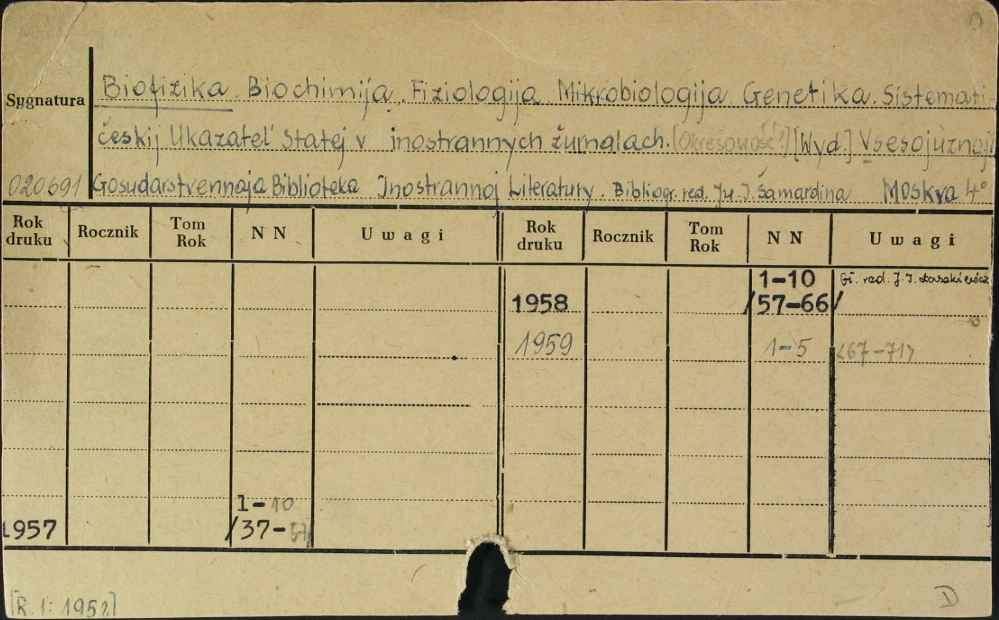 Sygnatura
Biofizika. Biochimija. Fiziologija Mikrobiologija Genetika. Sistemati-
českij Ukazatel' Statej v inostrannych žurnalach. [Okresowość ] [Wyd.] Vsesojuznaja
020691 Gosudarstvennaja Biblioteka Inostrannoj Literatury. Bibliogr. red. Ju. I. Šamardina Moskva 4°
Rok druku Rocznik Tom Rok N N Uwagi Rok druku Rocznik Tom Rok N N Uwagi
1-10 Gł. red. J. I.
1958 /57-66/
1959 1-5 <67-71>
1-10
1957 /37-
[R. 1: 1952]
D